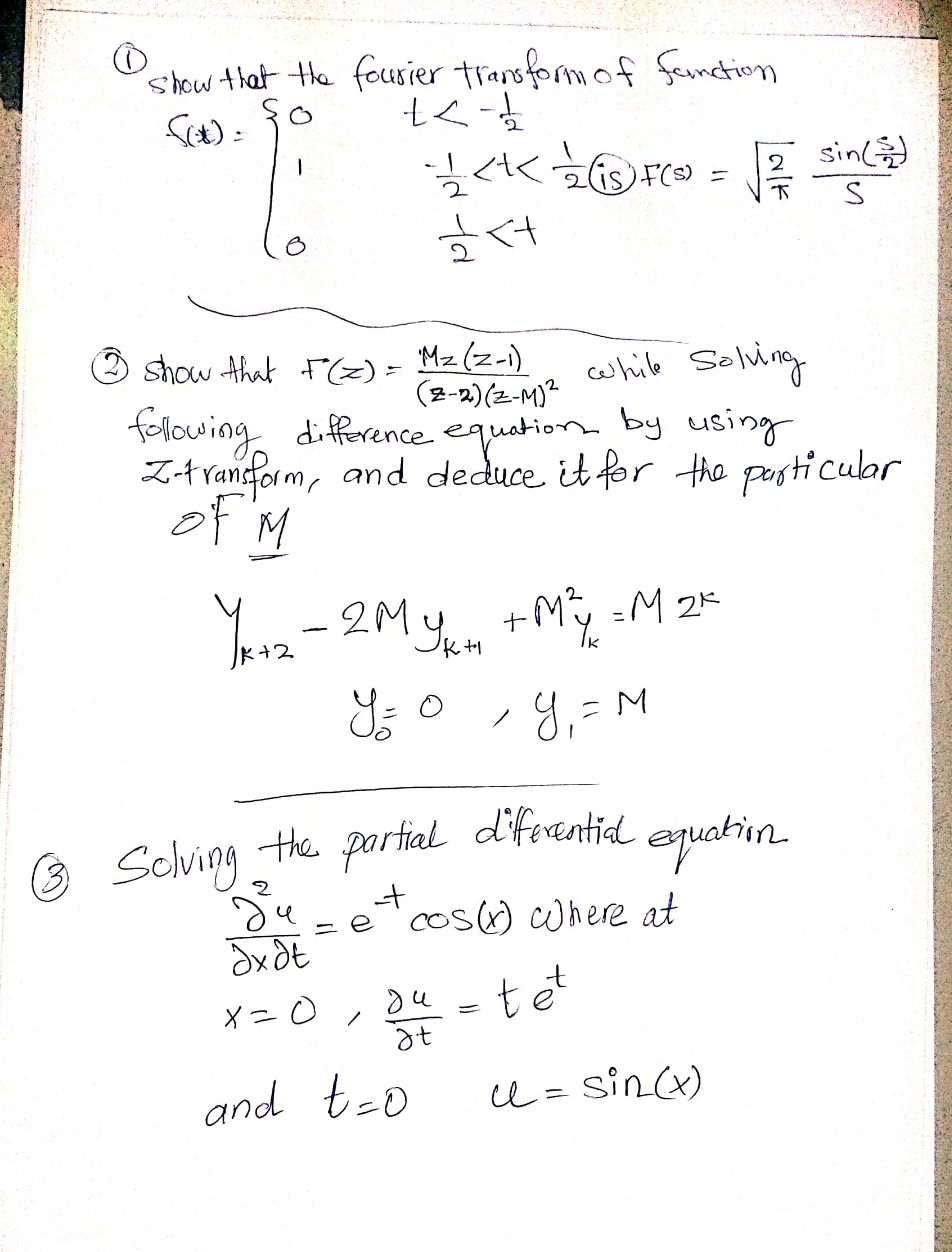 ① show that the fourier transform of function
f(t) = { 0 t < -1/2
1 -1/2 < t < 1/2 is F(s) = √(2/π) sin(s/2)/s
0 1/2 < t
② show that F(z) = Mz(z-1)/((z-2)(z-M)²) while solving
following difference equation by using
Z-transform, and deduce it for the particular
of M
y_{k+2} - 2M y_{k+1} + M² y_k = M 2^k
y_0 = 0 , y_1 = M
③ Solving the partial differential equation
∂²u/∂x∂t = e^{-t} cos(x) where at
x = 0 , ∂u/∂t = t e^t
and t=0 u = sin(x)